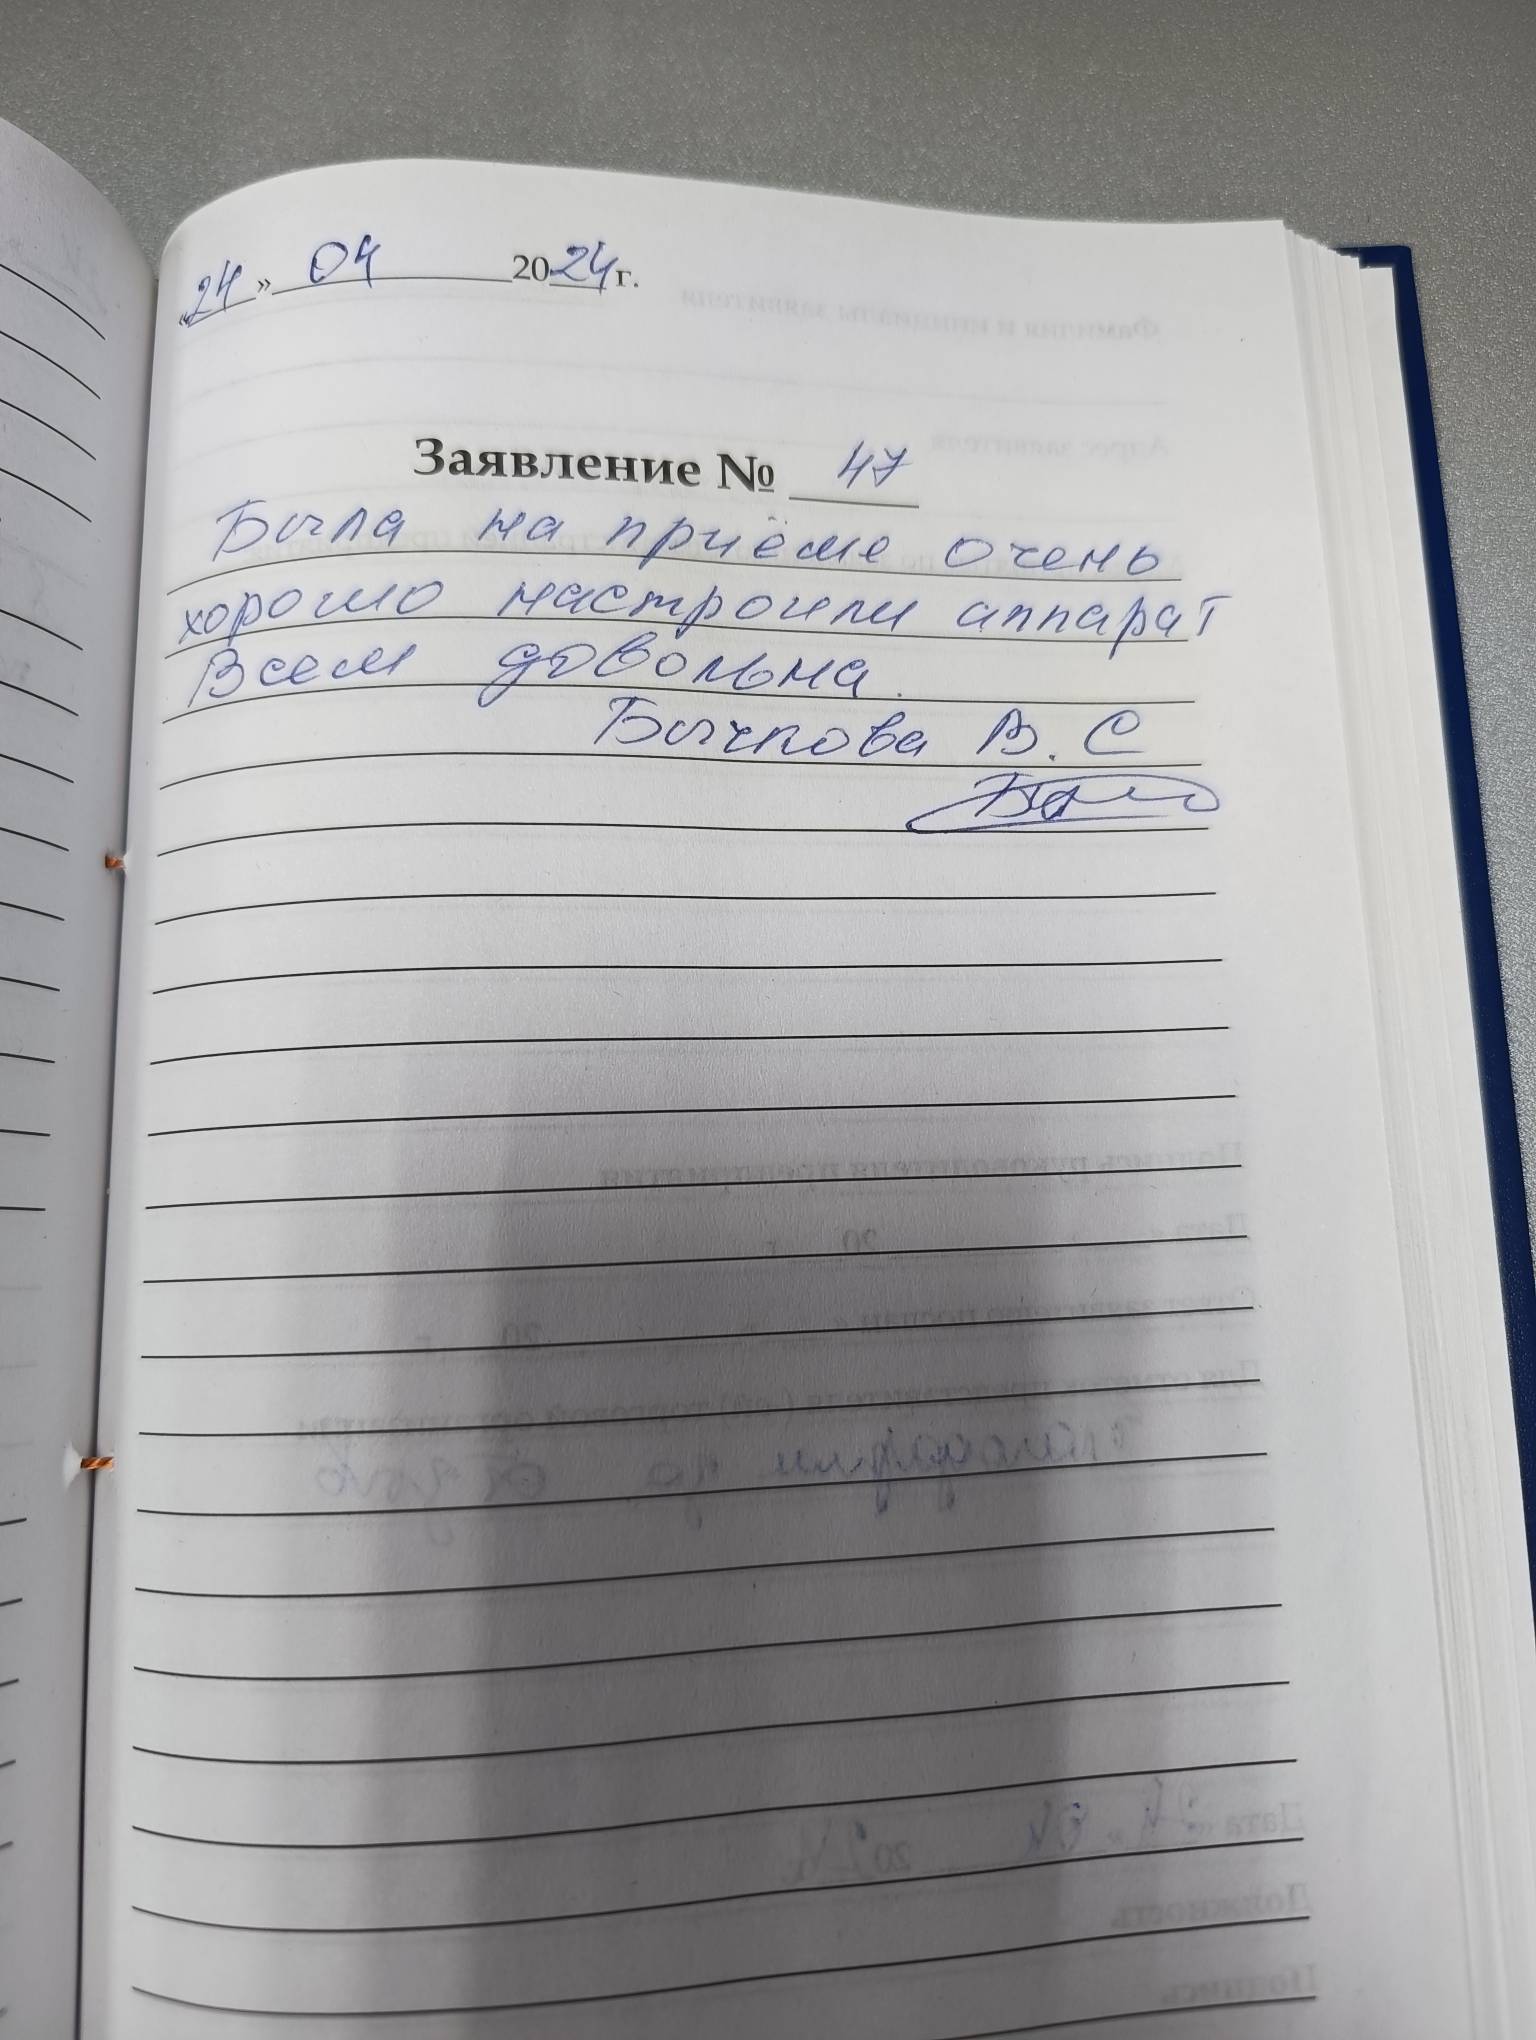 «24» 04 2024 г.
Заявление № 47
Была на приёме очень
хорошо настроили аппарат
Всем довольна.
Бычкова В. С